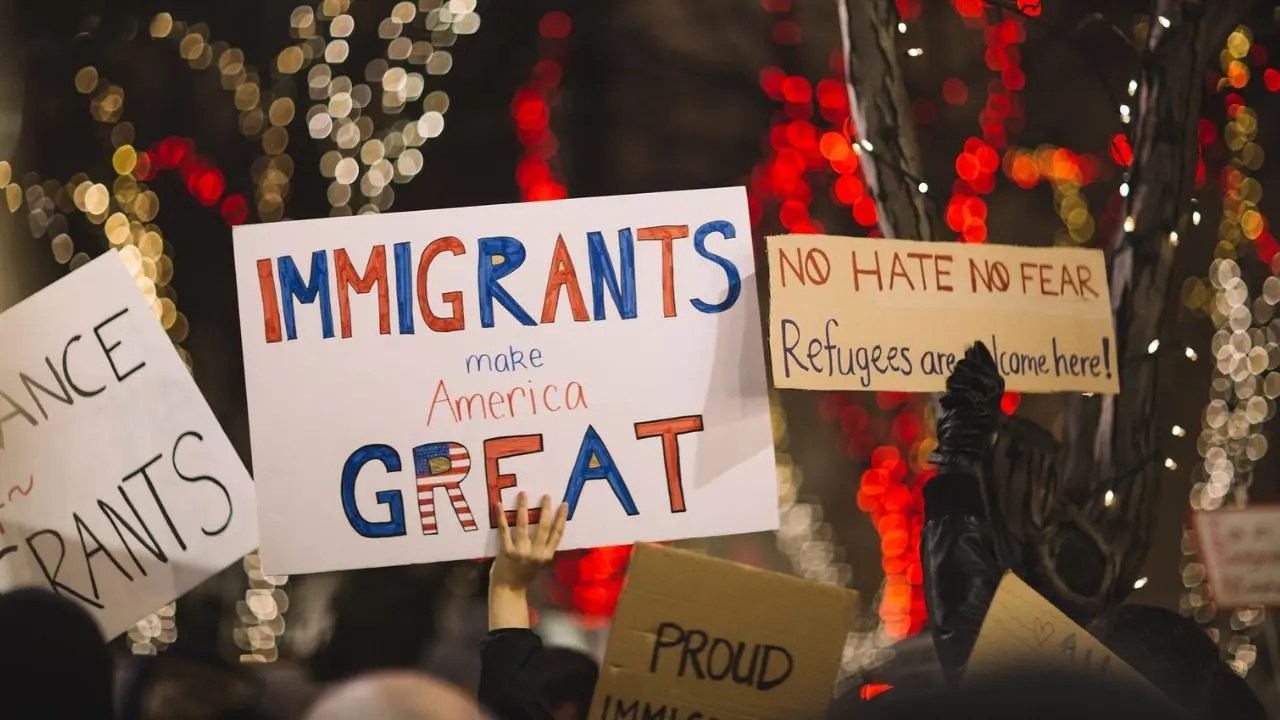 ANCE
RANTS
IMMIGRANTS
make
America
GREAT
NO HATE NO FEAR
Refugees are lcome here!
PROUD
IMMIG